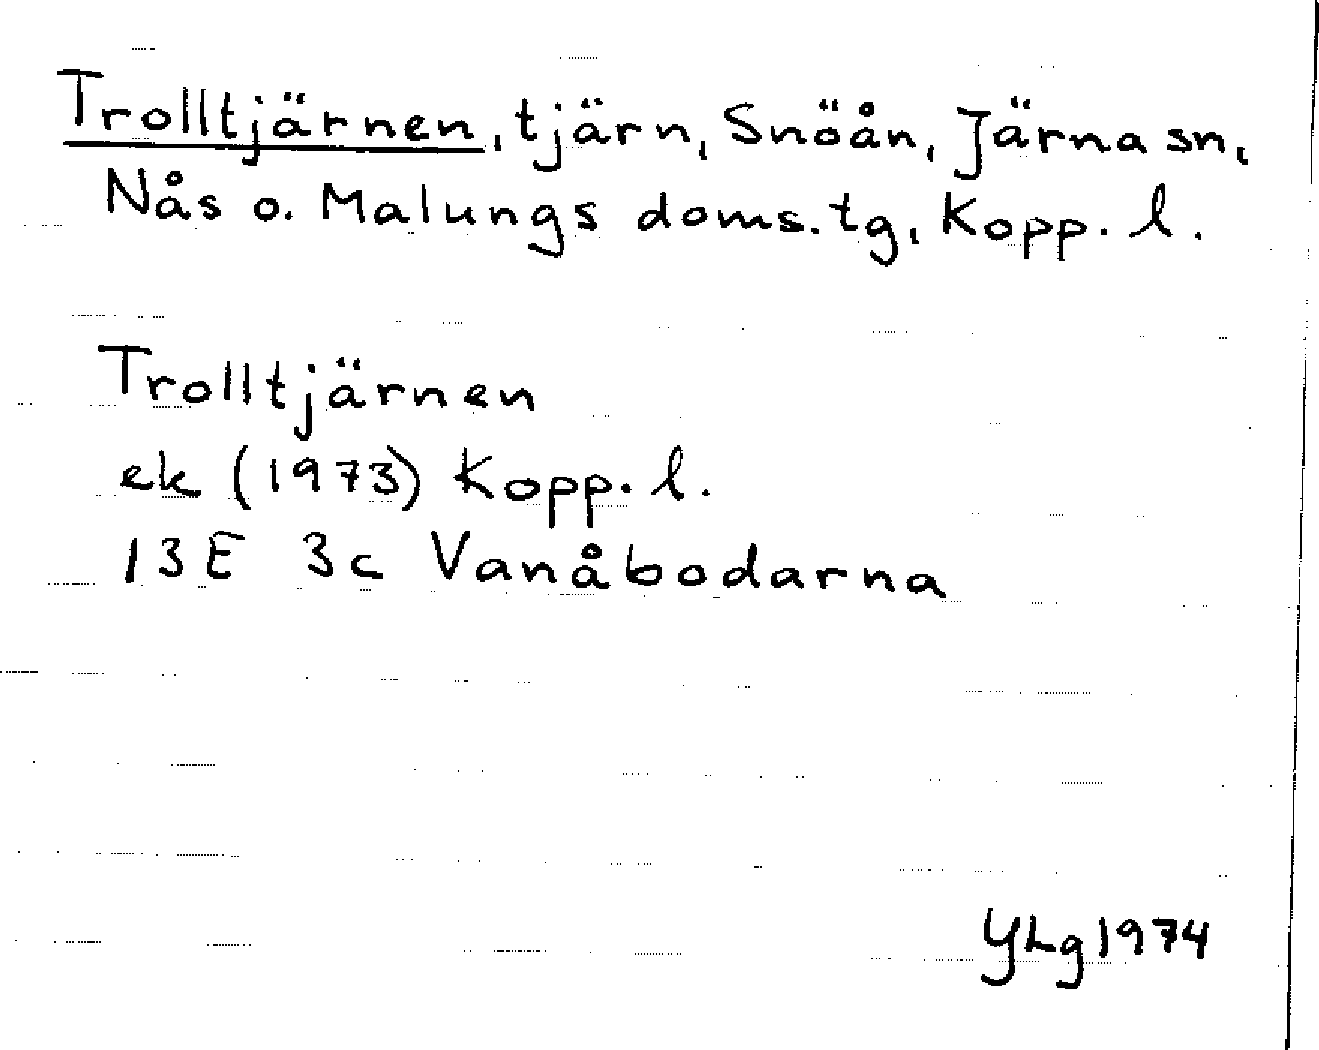 Trolltjärnen, tjärn, Snöån, Järna sn,
Nås o. Malungs doms.tg, Kopp. l.
Trolltjärnen
ek (1973) Kopp. l.
13E 3c Vanåbodarna
YLg 1974